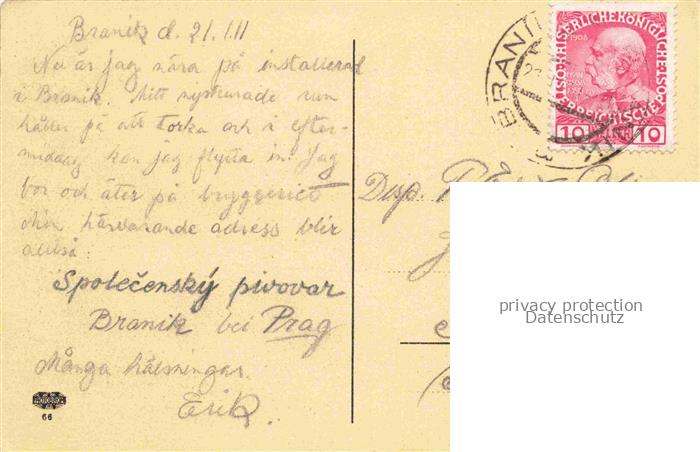 Branik d. 21/1.11
Nu är jag nära på installerad
i Branik. Mitt nystrukna rum
håller på att torka och i efter-
middag kan jag flytta in. Jag
bor och äter på bryggeriet
Min härvarande adress blir
alltså:
Společenský pivovar
Branik bei Prag
Många hälsningar.
Erik.
66
BRANÍK
1908
10 10
Disp.
privacy protection
Datenschutz